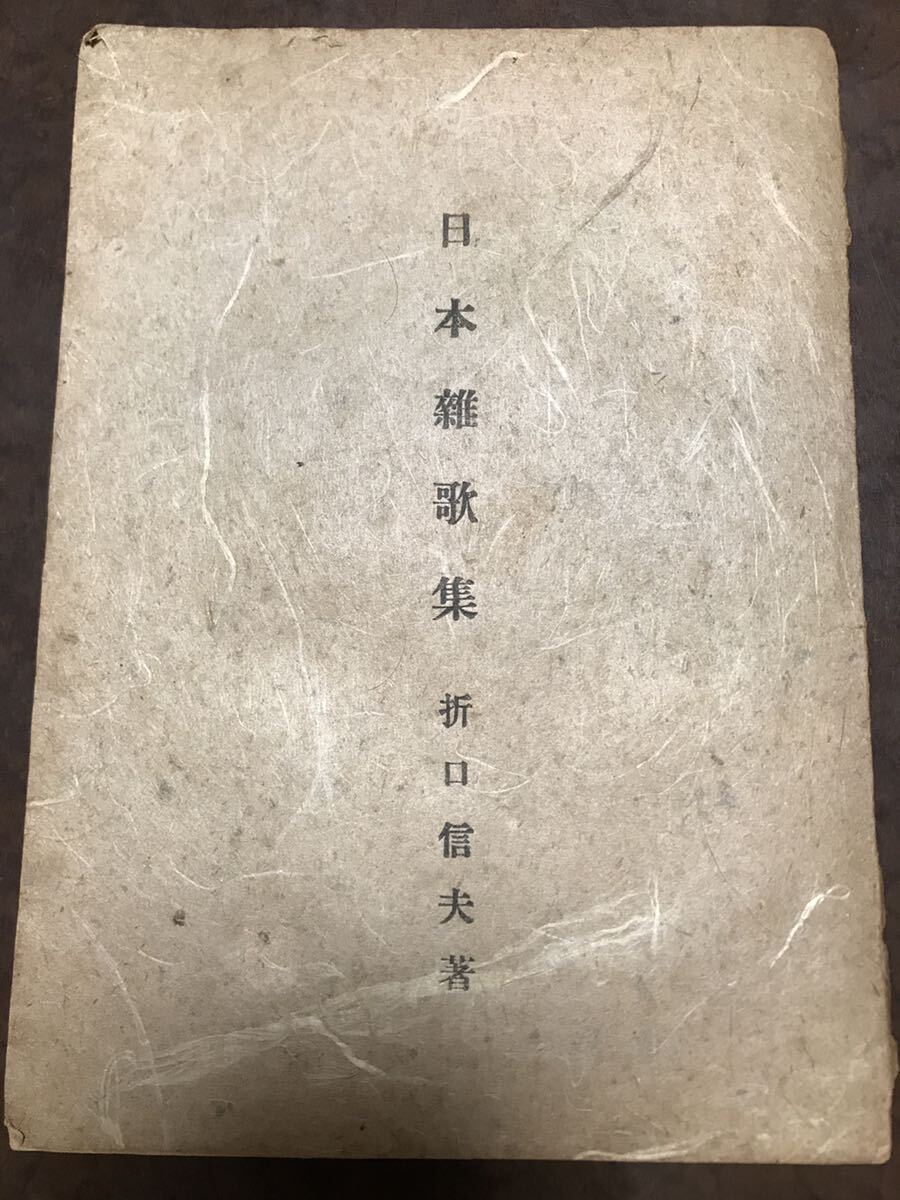 日本雜歌集 折口信夫著